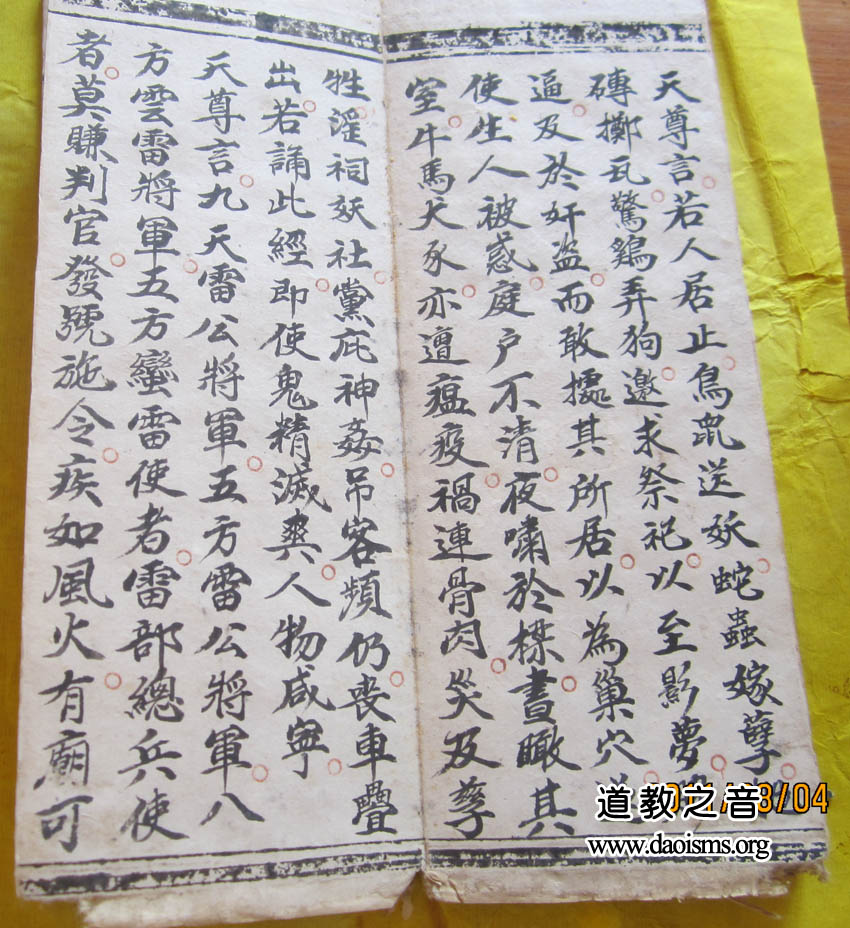 天尊言若人居止鳥鼠送妖蛇蟲嫁孽
磚擲瓦驚鷄弄狗邀求祭祀以至影夢
逼及於奸盗而敢據其所居以為巢穴
使生人被惑庭户不清夜嘯於樑晝瞰其
室牛馬犬豕亦遭瘟疫禍連骨肉災及孳
牲淫祠妖社黨庇神姦吊客頻仍喪車疊
出若誦此經即使鬼精滅爽人物咸寧
天尊言九天雷公將軍五方雷公將軍八
方雲雷將軍五方蠻雷使者雷部總兵使
者莫賺判官發號施令疾如風火有廟可
道教之音
/04
www.daoisms.org